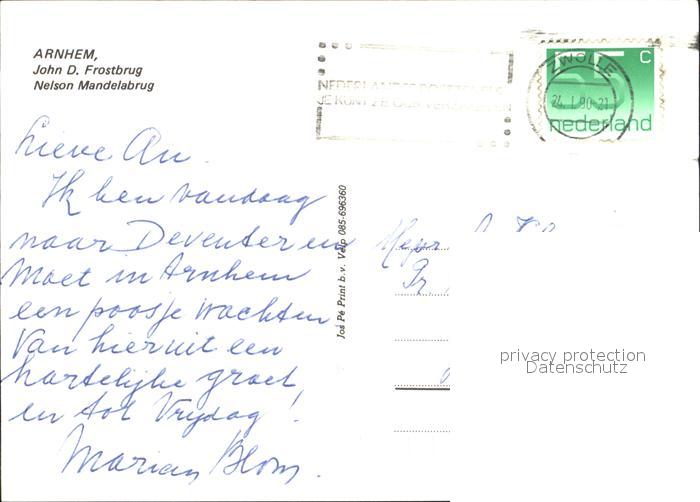 ARNHEM,
John D. Frostbrug
Nelson Mandelabrug
Lieve An.
Ik ben vandaag
naar Deventer en
moet in Arnhem
een poosje wachten.
Van hieruit een
hartelijke groet,
en tot Vrijdag!
Marian Blom.
Jos Pé Print b.v. Velp 085-696360
JE KUNT ZE OOK VERZAMELEN
ZWOLLE
24.I.90.21
c
nederland
Mejr.
privacy protection
Datenschutz